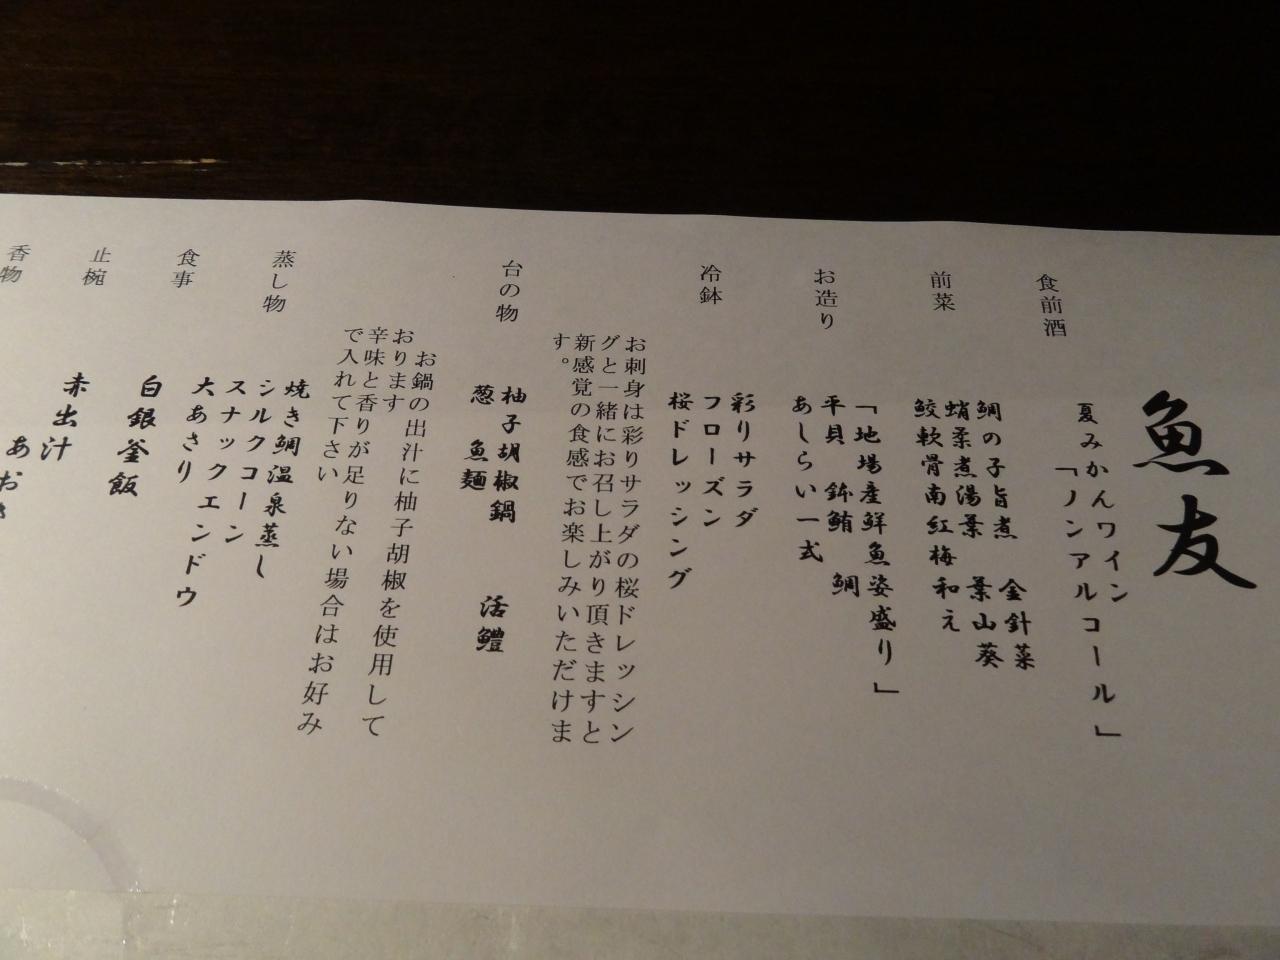 魚友
食前酒
夏みかんワイン
「ノンアルコール」
前菜
鯛の子旨煮 金針菜
蛸柔煮湯葉 葉山葵
鮫軟骨南紅梅和え
お造り
「地場産鮮魚姿盛り」
平貝 鮪 鯛
あしらい一式
冷鉢
彩りサラダ
フローズン
桜ドレッシング
お刺身は彩りサラダの桜ドレッシン
グと一緒にお召し上がり頂きますと
新感覚の食感でお楽しみいただけま
す。
台の物
柚子胡椒鍋 活鱧
葱 魚麺
お鍋の出汁に柚子胡椒を使用して
おります
辛味と香りが足りない場合はお好み
で入れて下さい
蒸し物
焼き鯛温泉蒸し
シルクコーン
スナックエンドウ
大あさり
食事
白銀釜飯
止椀
赤出汁
香物
あおさ